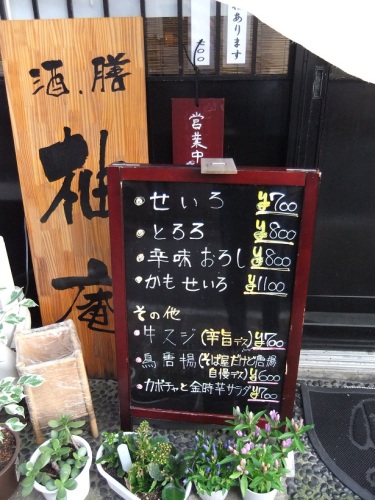 あります
酒.膳
柚庵
営業中
せいろ ¥700
とろろ ¥800
辛味おろし ¥800
かもせいろ ¥1100
その他
牛スジ(辛旨デス) ¥700
鳥唐揚(そば屋だけど唐揚
自慢デス) ¥600
カボチャと金時芋サラダ ¥700